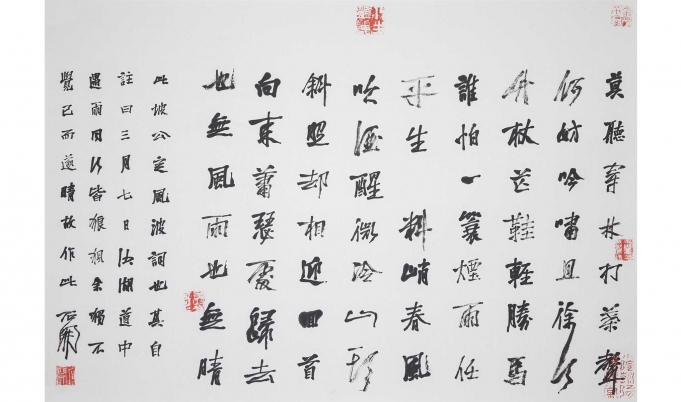 莫聽穿林打葉聲
何妨吟嘯且徐行
竹杖芒鞋輕勝馬
誰怕一簑煙雨任
平生 料峭春風
吹酒醒微冷山頭
斜照却相迎回首
向來蕭瑟處歸去
也無風雨也無晴
此坡公定風波詞也其自
註曰三月七日沙湖道中
遇雨同行皆狼狽余獨不
覺已而遂晴故作此